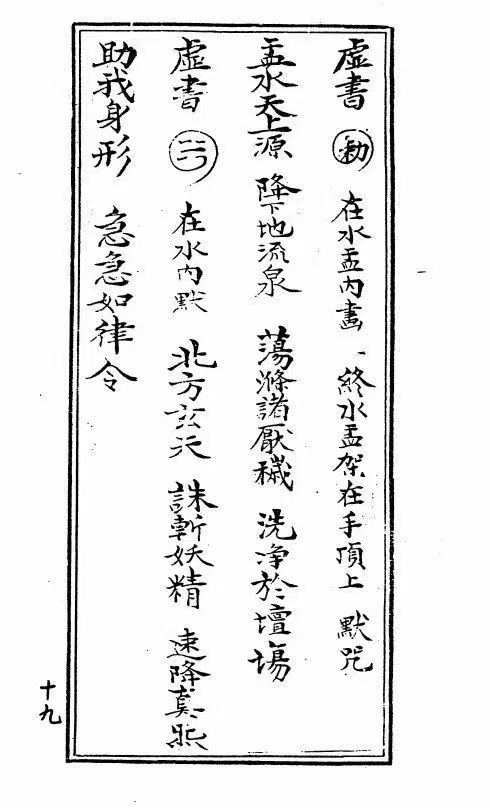 虛書 勅 在水盂內畫 終水盂架在手頂上 默咒
盂水天上源 降下地流泉 蕩滌諸厭穢 洗净於壇場
虛書 在水內默 北方玄天 誅斬妖精 速降真炁
助我身形 急急如律令
十九